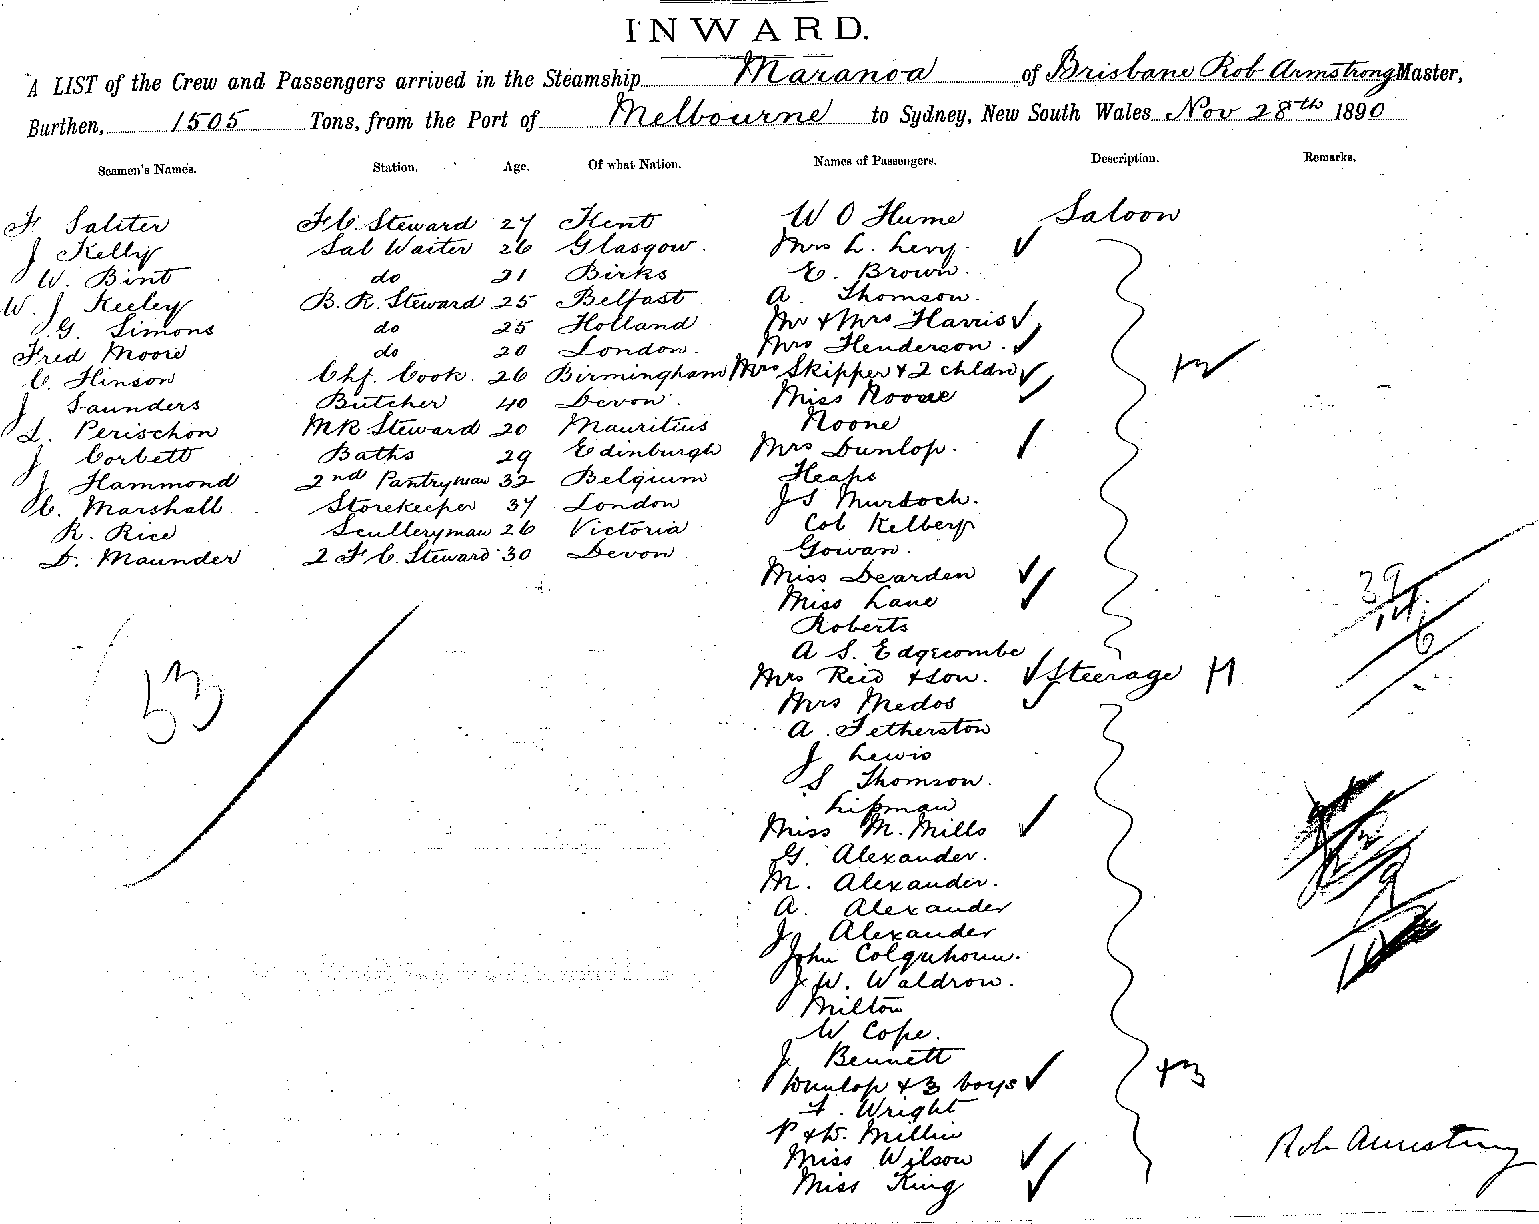 INWARD.
A LIST of the Crew and Passengers arrived in the Steamship Maranoa of Brisbane Rob Armstrong Master,
Burthen, 1505 Tons, from the Port of Melbourne to Sydney, New South Wales Nov 28th 1890
Seamen's Names. Station, Age, Of what Nation. Names of Passengers. Description. Remarks.
F Saliter F C. Steward 27 Kent W O Hume Saloon
J Kelly Sal Waiter 26 Glasgow. Mrs L. Levy.
W. Bint do 21 Birks E. Brown.
W. J Keeley B. R. Steward 25 Belfast A. Thomson.
G. Simons do 25 Holland Mr & Mrs Harris
Fred Moore do 20 London. Mrs Henderson.
C. Hinson Chf. Cook. 26 Birmingham Mrs Skipper & 2 chldn +2
J Saunders Butcher 40 Devon. Miss Noone
L. Perischon MR Steward 20 Mauritius Noone
J Corbett Baths 29 Edinburgh Mrs Dunlop.
J Hammond 2nd Pantryman 32 Belgium Heaps
C. Marshall Storekeeper 37 London JS Murdoch.
R. Rice Sculleryman 26 Victoria Col Kelberg
D. Maunder 2 F C. Steward 30 Devon Gowan.
Miss Dearden 39
Miss Lane 14
Roberts 6
A S. Edgecombe
Mrs Reid & Son. Steerage H
53 Mrs Medos
A. Fetherston
J Lewis
S Thomson.
Lipman
Miss M. Mills
G. Alexander.
M. Alexander.
A. Alexander
J Alexander
John Colquhoun.
J. W. Waldron.
Milton
W Cope.
J Bennett
Dunlop & 3 boys +3
F. Wright
P & W. Millin
Miss Wilson Rob Armstrong
Miss King